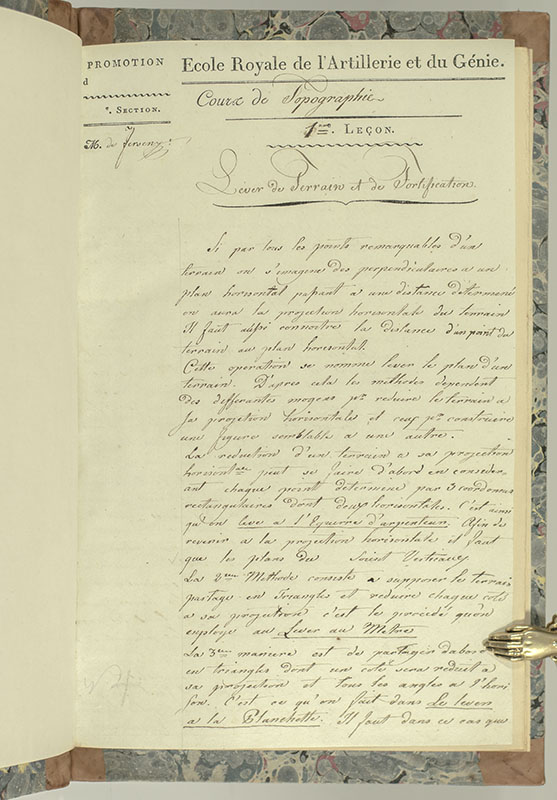 PROMOTION
d
e. SECTION.
M. de
Ecole Royale de l'Artillerie et du Génie.
Cours de Topographie
1ere. LEÇON.
Lever de Terrain et de Fortification.
Si par tous les points remarquables d'un
terrain on s'imagine des perpendiculaires a un
plan horisontal passant a une distance determiné
on aura la projection horisontale du terrain
Il faut aussi connoitre la distance d'un point du
terrain au plan horisontal.
Cette operation se nomme lever le plan d'un
terrain. D'apres cela les methodes dependent
des differantes moyens pr. reduire le terrain a
sa projetion horisontale et ceux pr. construire
une figure semblable a une autre.
La reduction d'un terrain a sa projection
horisontale peut se faire d'abord en consider-
ant chaque point determiné par 3 coordonnés
rectangulaires dont deux horisontales. C'est ainsi
qu'on leve a l'Equerre d'arpenteur. Afin de
revenir a la projection horisontale il faut
que les plans du soient Verticaux
La 2eme Methode consiste a supposer le terrain
partagé en Triangles et reduire chaque coté
a sa projection c'est le procédé qu'on
employe au Lever au Metre
La 3eme maniere est de partager d'abord
en triangles dont un coté sera reduit a
sa projection et tous les angles a l'hori
son. C'est ce qu'on fait dans Le lever
a la Planchette. Il faut dans ce cas que